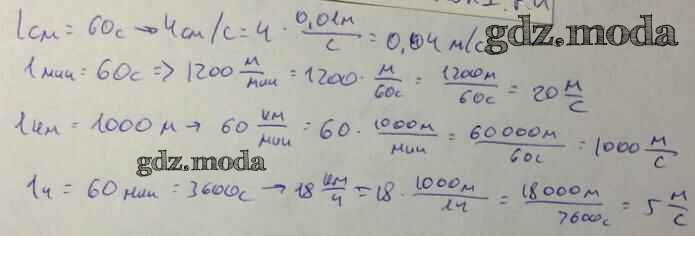 1см = 60с → 4см/с = 4 · 0,01м/с = 0,04 м/с
gdz.moda
1мин = 60с => 1200 м/мин = 1200 · м/60с = 1200м/60с = 20 м/с
1км = 1000 м → 60 км/мин = 60 · 1000м/мин = 60000м/60с = 1000 м/с
gdz.moda
1ч = 60мин = 3600с → 18 км/ч = 18 · 1000м/1ч = 18000м/3600с = 5 м/с